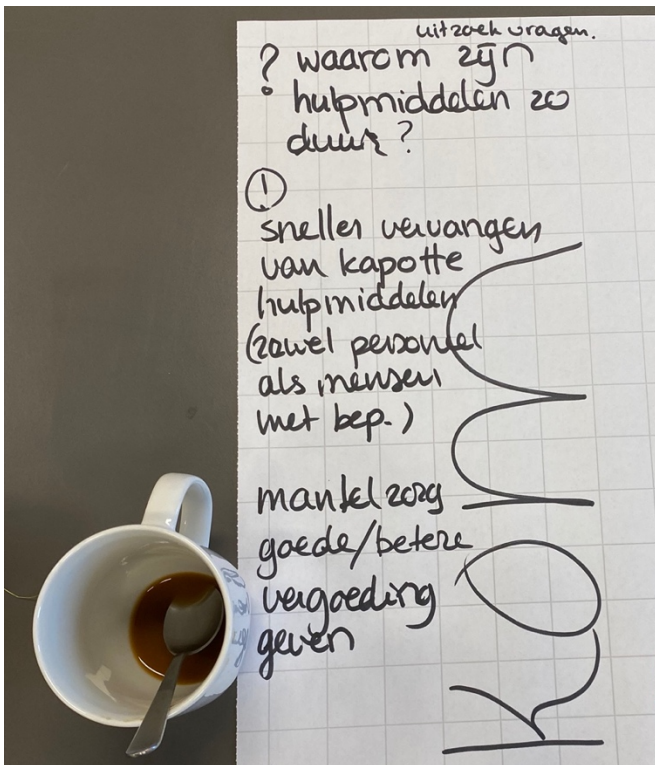 uitzoek vragen.
? waarom zijn
hulpmiddelen zo
duur?
!
sneller vervangen
van kapotte
hulpmiddelen
(zowel personeel
als mensen
met bep.)
mantelzorg
goede/betere
vergoeding
geven